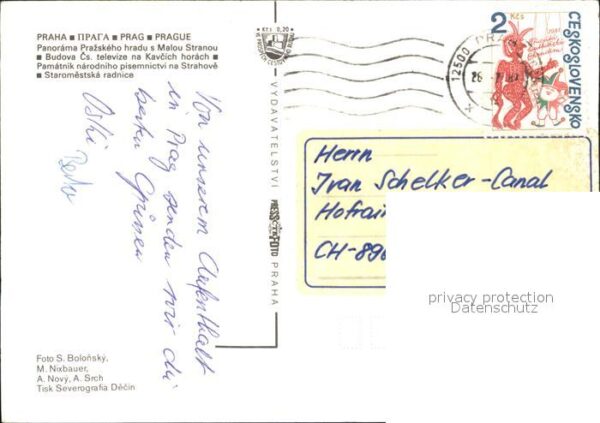 PRAHA ■ ПРАГА ■ PRAG ■ PRAGUE
Panoráma Pražského hradu s Malou Stranou
■ Budova Čs. televize na Kavčích horách ■
Památník národního písemnictví na Strahově
■ Staroměstská radnice
Von unserem Aufenthalt
in Prag senden wir die
beste Grüsse
Foto S. Boloňský,
M. Nixbauer,
A. Nový, A. Srch
Tisk Severografia Děčín
Kčs 0,20
VYDAVATELSTVÍ
PRESSFOTO
PRAHA
12500 PRAHA
2 Kčs
ČESKOSLOVENSKO
Herrn
Ivan Schelker-Canal
Hofrai
CH-890
privacy protection
Datenschutz